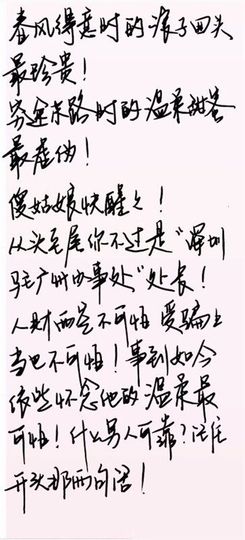 春风得意时的浪子回头
最珍贵！
穷途末路时的温柔甜蜜
最虚伪！
傻姑娘快醒之！
从头至尾你不过是“深圳
驻广州办事处”处长！
人财两空不可怕 受骗上
当也不可怕！事到如今
依然怀念他的温柔最
可怕！什么男人可靠？记住
开头那两句话！